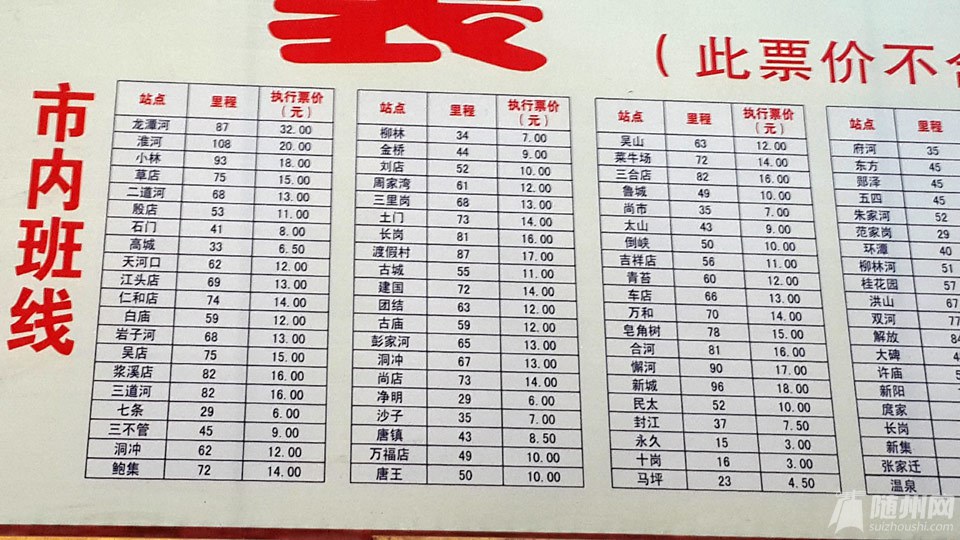 表
（此票价不含
市内班线
站点 里程 执行票价（元）
龙潭河 87 32.00
淮河 108 20.00
小林 93 18.00
草店 75 15.00
二道河 68 13.00
殷店 53 11.00
石门 41 8.00
高城 33 6.50
天河口 62 12.00
江头店 69 13.00
仁和店 74 14.00
白庙 59 12.00
岩子河 68 13.00
吴店 75 15.00
浆溪店 82 16.00
三道河 82 16.00
七条 29 6.00
三不管 45 9.00
洞冲 62 12.00
鲍集 72 14.00
站点 里程 执行票价（元）
柳林 34 7.00
金桥 44 9.00
刘店 52 10.00
周家湾 61 12.00
三里岗 68 13.00
土门 73 14.00
长岗 81 16.00
渡假村 87 17.00
古城 55 11.00
建国 72 14.00
团结 63 12.00
古庙 59 12.00
彭家河 65 13.00
洞冲 67 13.00
尚店 73 14.00
净明 29 6.00
沙子 35 7.00
唐镇 43 8.50
万福店 49 10.00
唐王 50 10.00
站点 里程 执行票价（元）
吴山 63 12.00
菜牛场 72 14.00
三合店 82 16.00
鲁城 49 10.00
尚市 35 7.00
太山 43 9.00
倒峡 50 10.00
吉祥店 56 11.00
青苔 60 12.00
车店 66 13.00
万和 70 14.00
皂角树 78 15.00
合河 81 16.00
懈河 90 17.00
新城 96 18.00
民太 52 10.00
封江 37 7.50
永久 15 3.00
十岗 16 3.00
马坪 23 4.50
站点 里程
府河 35
东方 45
郧泽 45
五四 45
朱家河 52
范家岗 29
环潭 40
柳林河 51
桂花园 57
洪山 67
双河 77
解放
大碑
许庙
新阳
庹家
长岗
新集
张家迁
温泉
随州网
suizhoushi.com